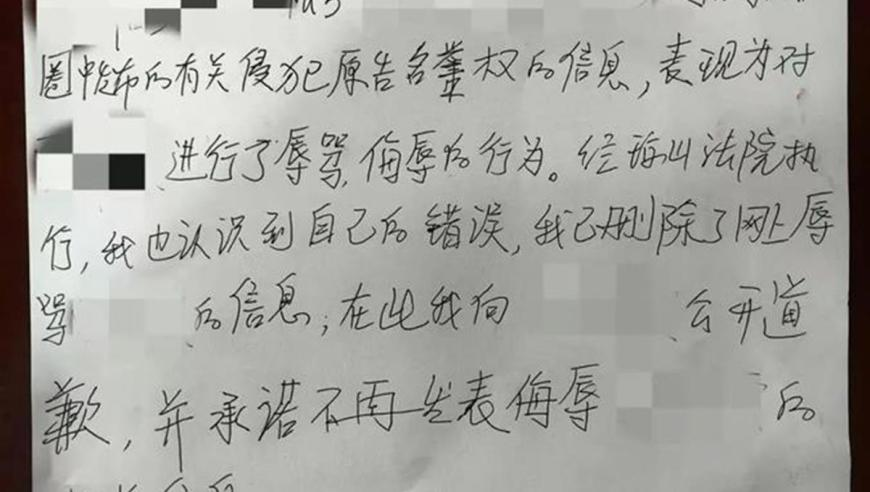 圈中发布的有关侵犯原告名誉权的信息,表现为对
进行了辱骂,侮辱的行为。经砀山法院执
行,我也认识到自己的错误,我已删除了网上辱
骂 的信息;在此我向 公开道
歉,并承诺不再发表侮辱 的